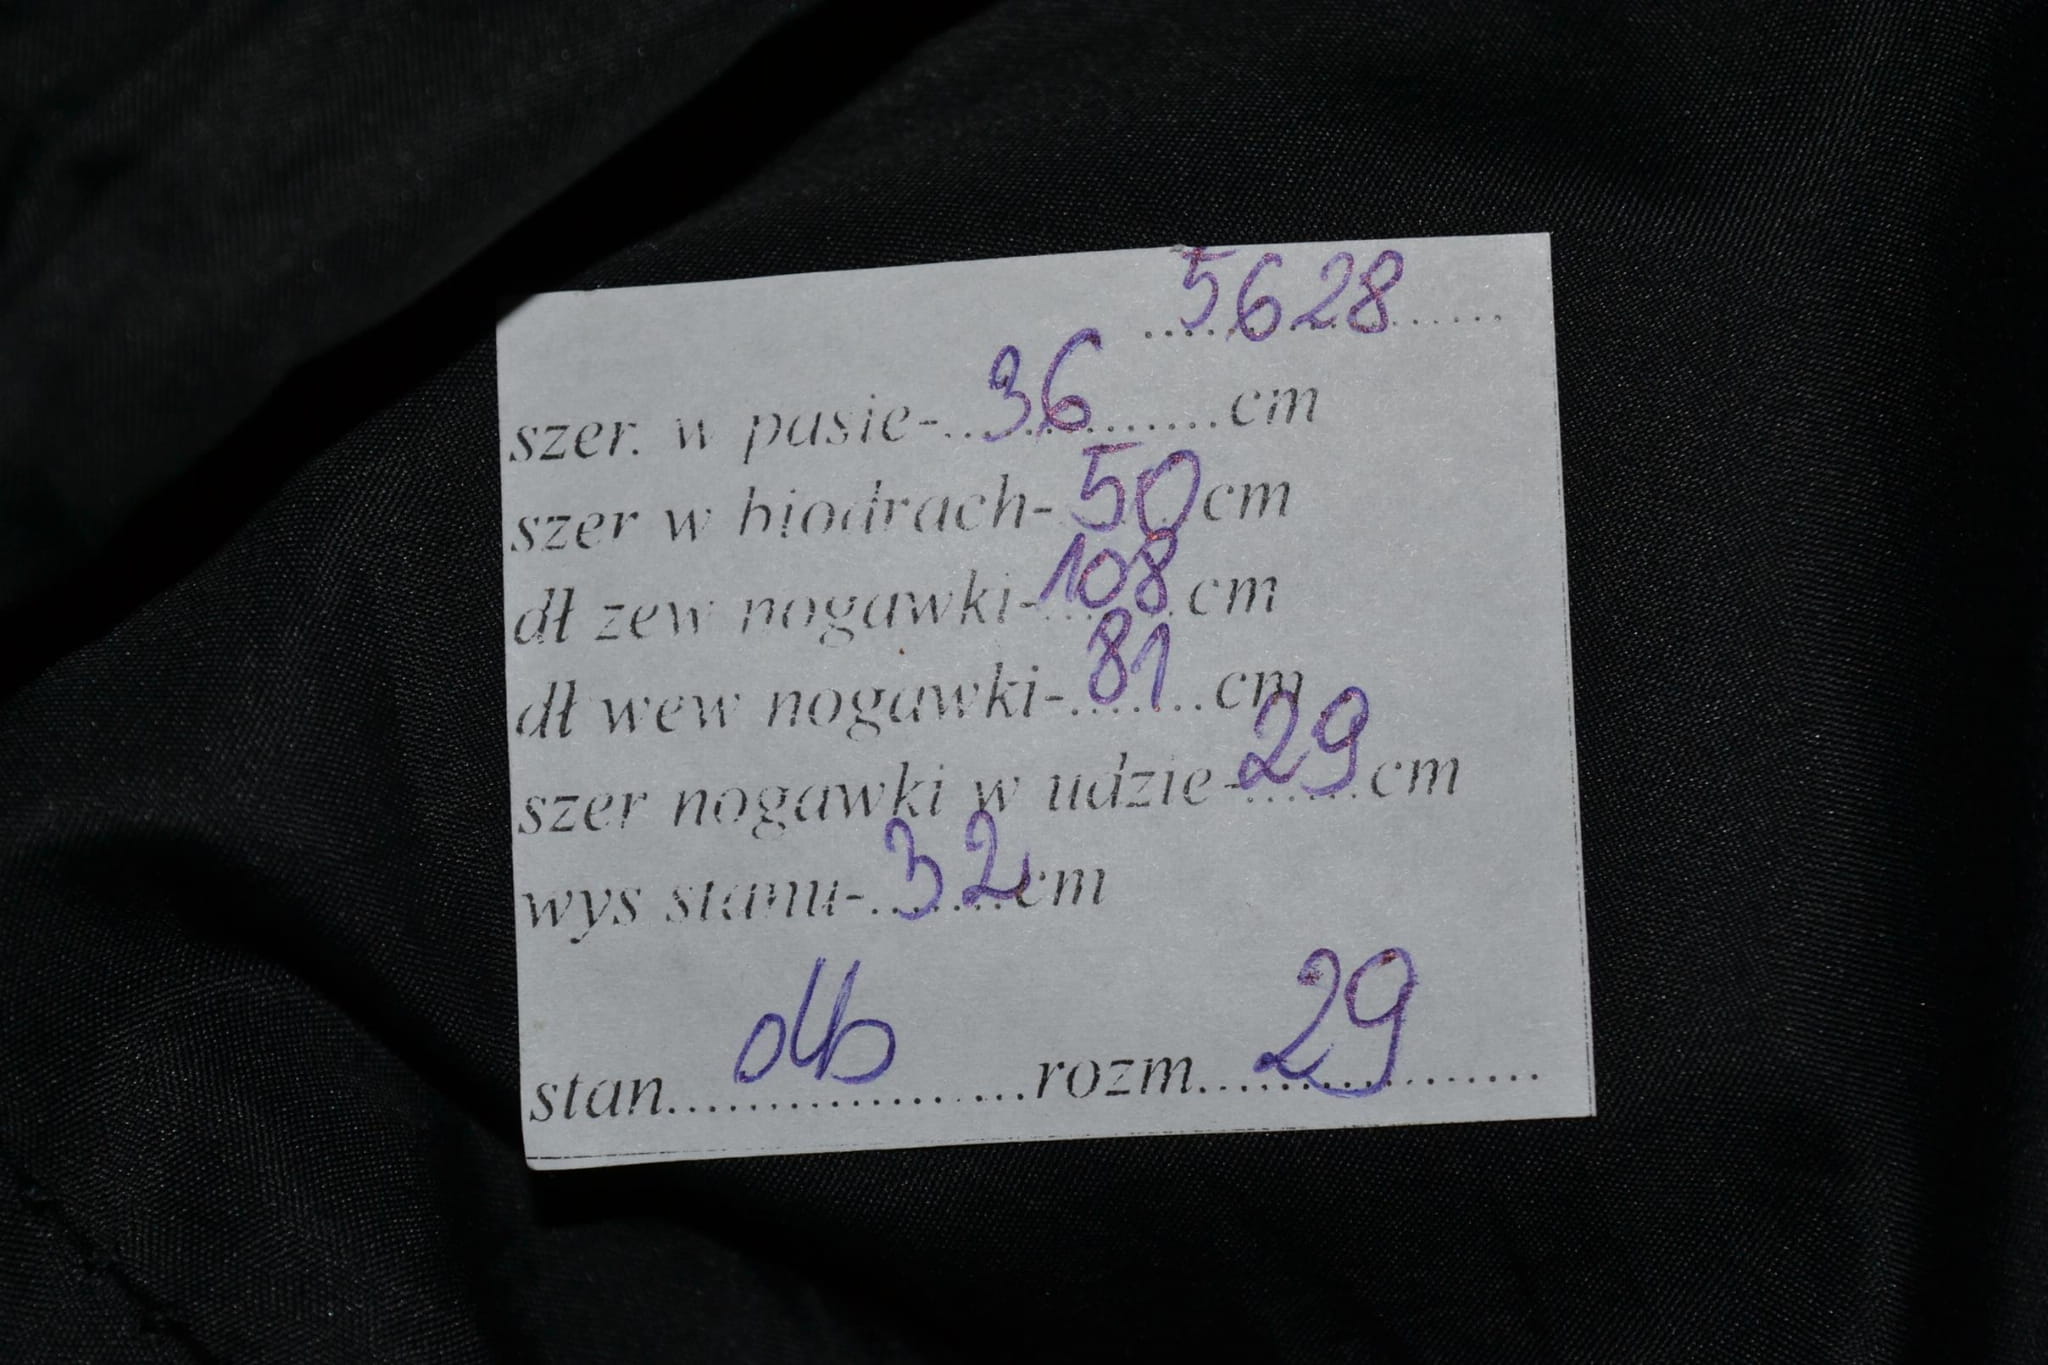 5628
szer. w pasie-...36...cm
szer w biodrach-50cm
dł zew nogawki-108cm
dł wew nogawki-81...cm
szer nogawki w udzie-29cm
wys stanu-32cm
stan...db...rozm...29...